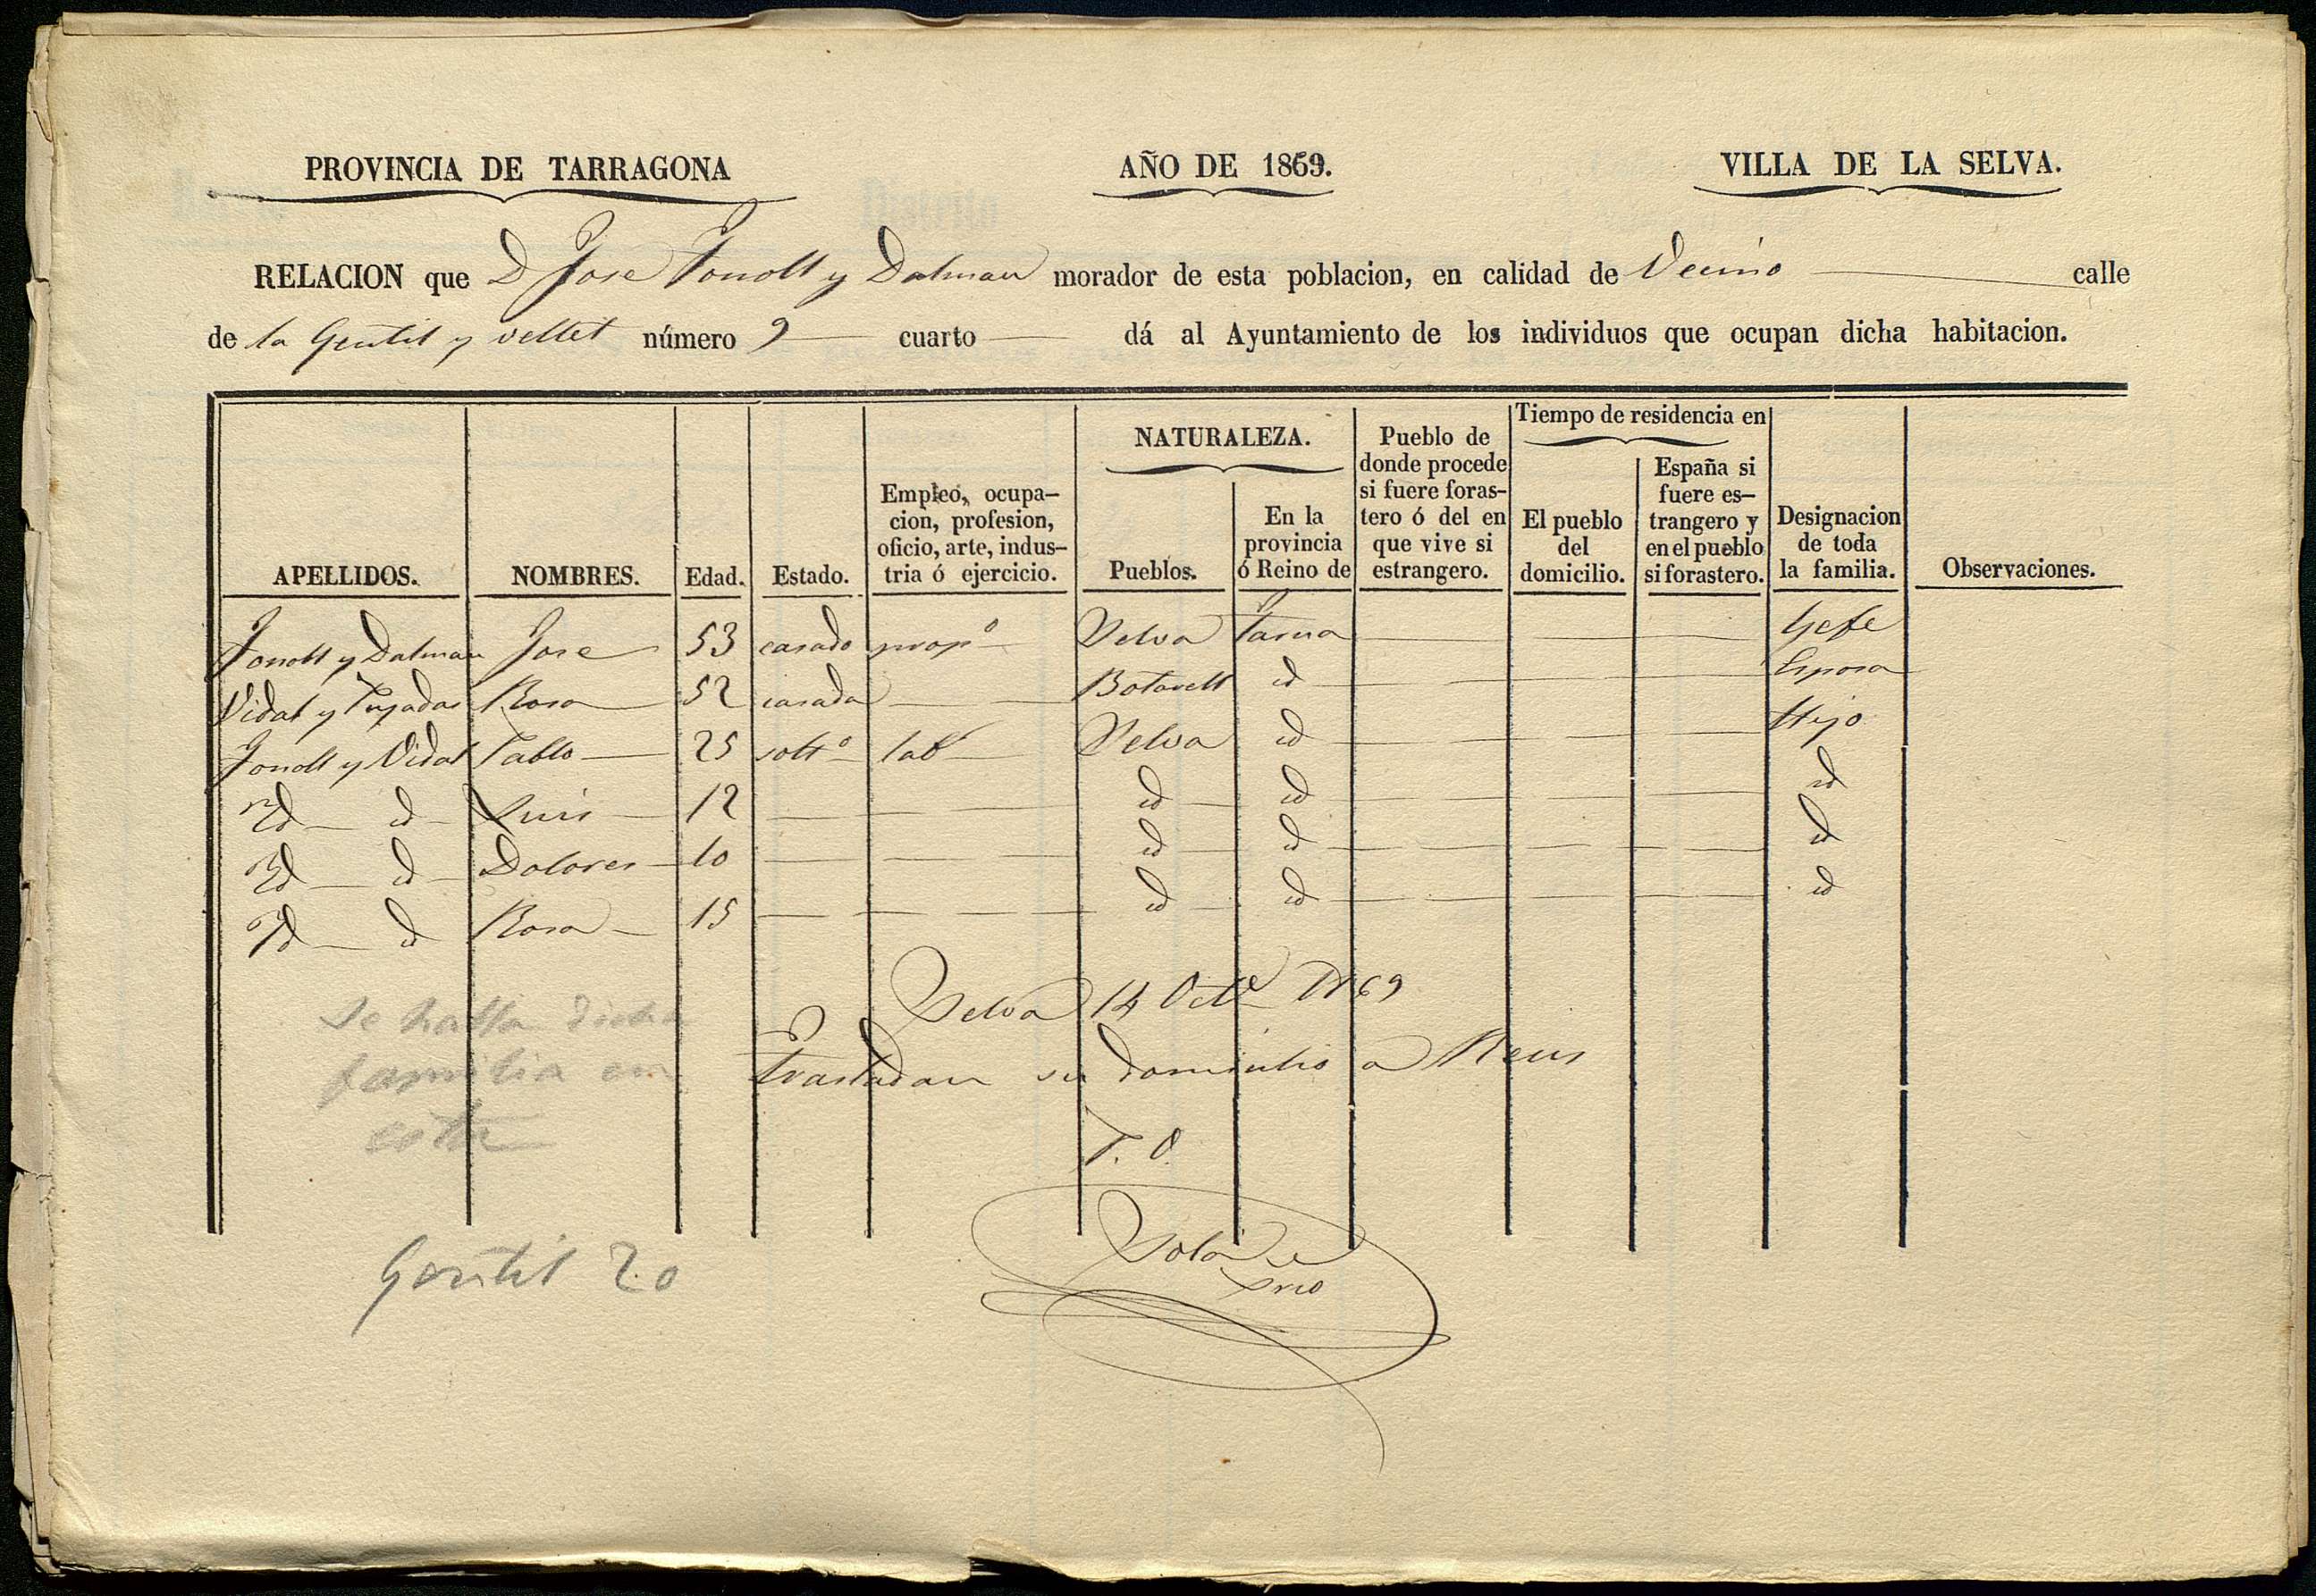 PROVINCIA DE TARRAGONA AÑO DE 1869. VILLA DE LA SELVA.
RELACION que D Jose Fonoll y Dalmau morador de esta poblacion, en calidad de Vecino calle
de la Gentil y vellet número 9 cuarto dá al Ayuntamiento de los individuos que ocupan dicha habitacion.
APELLIDOS. NOMBRES. Edad. Estado. Empleo, ocupacion, profesion, oficio, arte, industria ó ejercicio. NATURALEZA. Pueblos. En la provincia ó Reino de Pueblo de donde procede si fuere forastero ó del en que vive si estrangero. Tiempo de residencia en El pueblo del domicilio. España si fuere estrangero y en el pueblo si forastero. Designacion de toda la familia. Observaciones.
Fonoll y Dalmau Jose 53 casado propº Selva Tarna Gefe
Vidal y Rosa 52 casada Botarell id Esposa
Fonoll y Vidal Pablo 25 soltº lab Selva id Hijo
Id id Luis 12 id id id
Id id Dolores 10 id id id
Id id Rosa 15 id id id
Selva 14 Octe 1869
Trasladan su domicilio a Reus
Se halla dicha
familia en
esta
Gentil 20